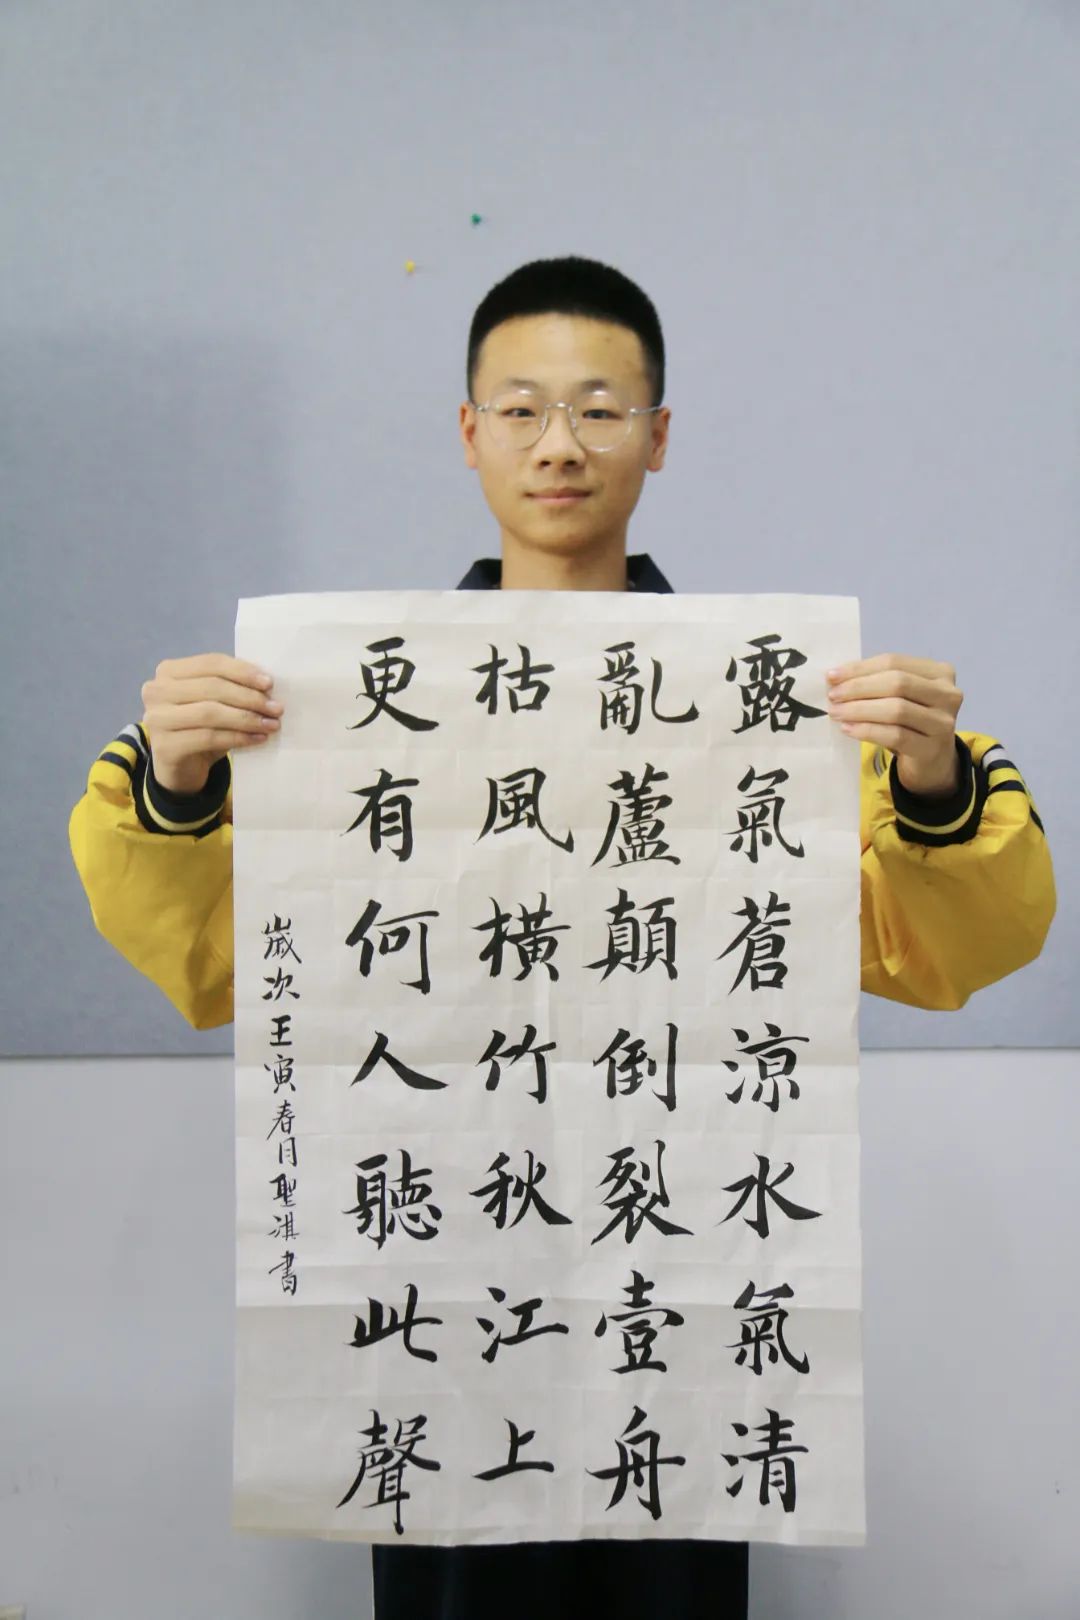 露氣蒼涼水氣清
亂蘆顛倒裂壹舟
枯風橫竹秋江上
更有何人聽此聲
歲次王寅春月聖淇書